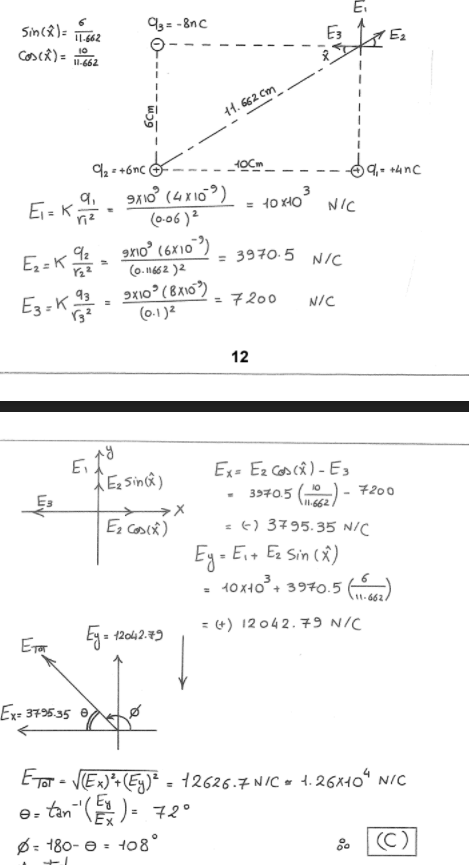 Sin(x̂) = 6/11.662
Cos(x̂) = 10/11.662
q3 = -8nC
E1
E3
E2
x̂
6Cm
11.662 cm
q2 = +6nC
10Cm
q1 = +4nC
E1 = K q1/r1² = 9x10⁹ (4x10⁻⁹)/(0.06)² = 10x10³ N/C
E2 = K q2/r2² = 9x10⁹ (6x10⁻⁹)/(0.11662)² = 3970.5 N/C
E3 = K q3/r3² = 9x10⁹ (8x10⁻⁹)/(0.1)² = 7200 N/C
12
y
E1
E2 Sin(x̂)
E3
X
E2 Cos(x̂)
Ex = E2 Cos(x̂) - E3
= 3970.5 (10/11.662) - 7200
= (-) 3795.35 N/C
Ey = E1 + E2 Sin(x̂)
= 10x10³ + 3970.5 (6/11.662)
= (+) 12042.79 N/C
ETot
Ey = 12042.79
Ex = 3795.35
θ
Ø
ETot = √(Ex)²+(Ey)² = 12626.7 N/C ≈ 1.26x10⁴ N/C
θ = tan⁻¹(Ey/Ex) = 72°
Ø = 180 - θ = 108°
(C)